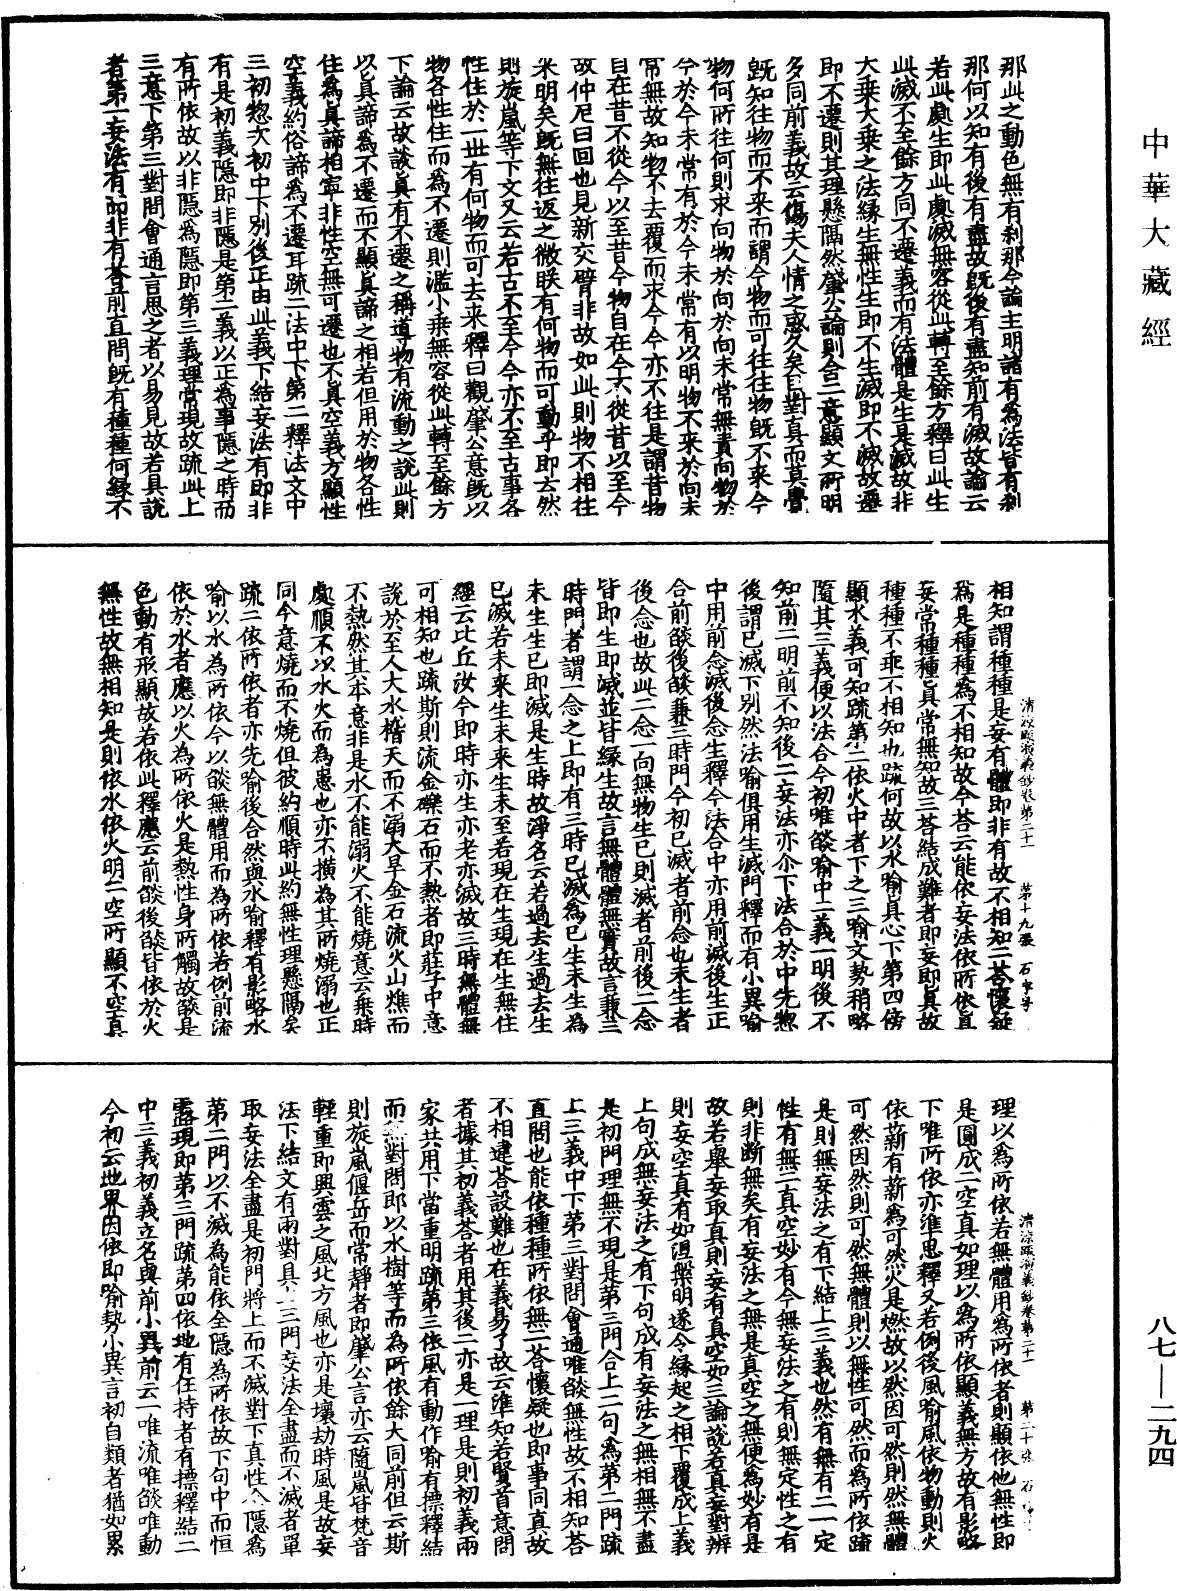 中華大藏經
那此之動色無有刹那今論主明諸有為法皆有刹
那何以知有後有盡故既後有盡知前有滅故論云
若此處生即此處滅無容從此轉至餘方釋曰此生
此滅不至餘方同不遷義而有法體是生是滅故非
大乗大乗之法緣生無性生即不生滅即不滅故遷
即不遷則其理懸隔然肇公論則含二意顯文所明
多同前義故云傷夫人情之惑久矣目對真而莫覺
既知往物而不来而謂今物而可往往物既不来今
物何所往何則求向物於向於向未常無責向物於
今於今未常有於今未常有以明物不来於向未
常無故知物不去覆而求今今亦不往是謂昔物
自在昔不從今以至昔今物自在今不從昔以至今
故仲尼曰回也見新交臂非故如此則物不相往
来明矣既無往返之微朕有何物而可動乎即云然
則旋嵐等下文又云若古不至今今亦不至古事各
性住於一世有何物而可去来釋曰觀肇公意既以
物各性住而為不遷則濫小乗無容從此轉至餘方
下論云故談真有不遷之稱導物有流動之說此則
以真諦為不遷而不顯真諦之相若但用於物各性
住為真諦相寧非性空無可遷也不真空義方顯性
空義約俗諦為不遷耳疏二法中下第二釋法文中
三初惣次初中下別後正由此義下結妄法有即非
有是初義隱即非隱是第二義以正為事隱之時而
有所依故以非隱為隱即第三義理常現故疏此上
三意下第三對問會通言思之者以易見故若具說
者第一妄法有即非有荅前直問既有種種何緣不
清涼䟽演義鈔卷第二十一　第十九張　石字号
相知謂種種是妄有體即非有故不相知二荅懷疑
為是種種為不相知故今荅云能依妄法依所依真
妄常種種真常無知故三荅結成難者即妄即真故
種種不乖不相知也疏何故以水喻真心下第四傍
顯水義可知疏第二依火中者下之三喻文勢稍略
隨其三義便以法合今初唯燄喻中二義一明後不
知前二明前不知後二妄法亦尒下法合於中先惣
後謂已滅下別然法喻俱用生滅門釋而有小異喻
中用前念滅後念生釋今法合中亦用前滅後生正
合前燄後燄兼三時門今初已滅者前念也未生者
後念也故此二念一向無物生已則滅者前後二念
皆即生即滅並皆緣生故言無體體無實故言兼三
時門者謂一念之上即有三時已滅為已生未生為
未生生已即滅是生時故淨名云若過去生過去生
已滅若未来生未来生未至若現在生現在生無住
經云比丘汝今即時亦生亦老亦滅故三時無體無
可相知也疏斯則流金礫石而不熱者即莊子中意
說於至人大水稽天而不溺大旱金石流火山燋而
不熱然其本意非是水不能溺火不能燒意云乗時
處順不以水火而為患也亦不横為其所燒溺也正
同今意燒而不燒但彼約順時此約無性理懸隔矣
疏二依所依者亦先喻後合然與水喻釋有影略水
喻以水為所依今以燄無體用而為所依若例前流
依於水者應以火為所依火是熱性身所觸故燄是
色動有形顯故若依此釋應云前燄後燄皆依於火
無性故無相知是則依水依火明二空所顯不空真
清涼䟽演義鈔卷第二十一　第二十張　石
理以為所依若無體用為所依者則顯依他無性即
是圓成二空真如理以為所依顯義無方故有影略
下唯所依亦準思釋又若例後風喻風依物動則火
依薪有薪為可然火是燃故以然因可然則然無體
可然因然則可然無體則以無性可然而為所依疏
是則無妄法之有下結上三義也然有無有二一定
性有無二真空妙有今無妄法之有則無定性之有
則非斷無矣有妄法之無是真空之無便為妙有是
故若舉妄取真則妄有真空如三論說若真妄對辨
則妄空真有如涅槃明遂令緣起之相下覆成上義
上句成無妄法之有下句成有妄法之無相無不盡
是初門理無不現是第三門合上二句為第二門疏
上三義中下第三對問會通唯燄無性故不相知荅
直問也能依種種所依無二荅懷疑也即事同真故
不相違荅設難也在義易了故云準知若賢首意問
者據其初義荅者用其後二亦是一理是則初義兩
家共用下當重明疏第三依風有動作喻有標釋結
而無對問即以水樹等而為所依餘大同前但云斯
則旋嵐偃岳而常靜者即肇公言亦云隨嵐㫷梵音
輕重即興雲之風北方風也亦是壞劫時風是故妄
法下結文有兩對具上三門妄法全盡而不滅者單
取妄法全盡是初門將上而不滅對下真性全隱為
第二門以不滅為能依全隱為所依故下句中而恒
露現即第三門疏第四依地有任持者有標釋結二
中三義初義立名與前小異前云一唯流唯燄唯動
今初云地界因依即喻勢小異言初自類者猶如累
八七—二九四